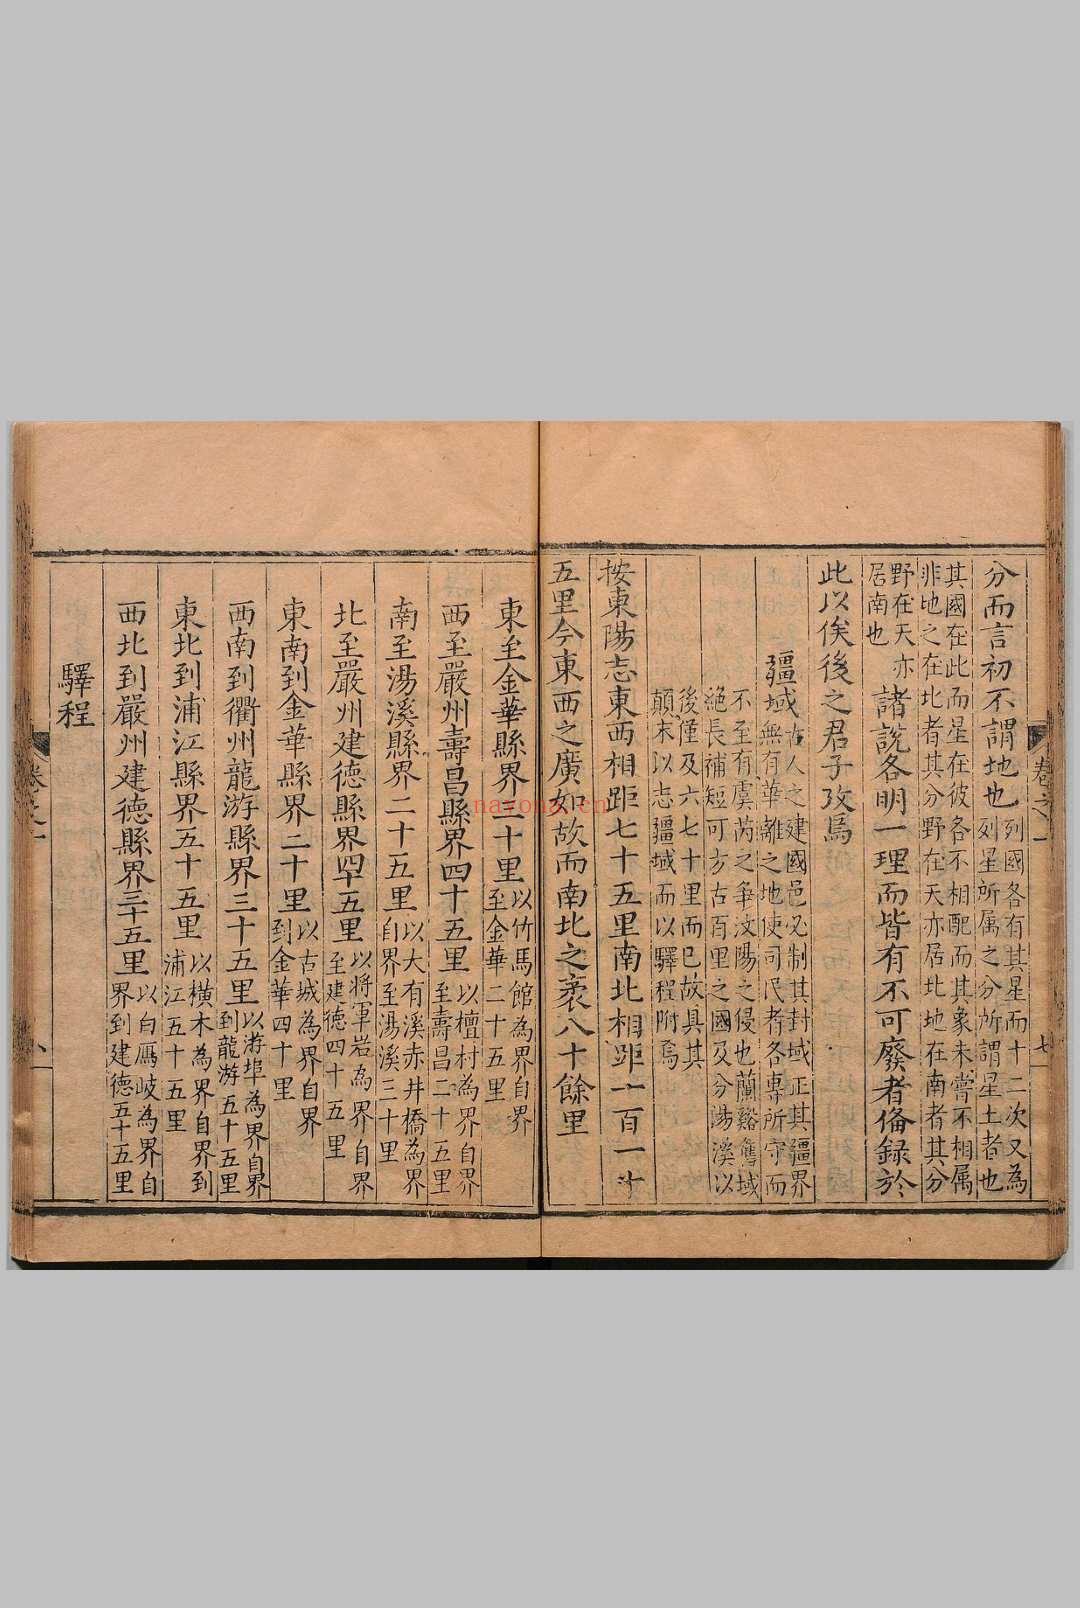 分而言初不謂地也列國各有其星而十二次又為
列星所属之分所謂星土者也
其國在此而星在彼各不相配而其象未嘗不相属
非地之在北者其分野在天亦居北地在南者其分
野在天亦
居南也
諸說各明一理而皆有不可廢者俻録於
此以俟後之君子攷焉
疆域古人之建國邑必制其封域正其疆界
無有華離之地使司民者各專所守而
不至有虞芮之爭汶陽之侵也蘭谿舊域
絕長補短可方古百里之國及分湯溪以
後僅及六七十里而已故具其
顛末以志疆域而以驛程附焉
按東陽志東西相距七十五里南北相距一百一十
五里今東西之廣如故而南北之袤八十餘里
卷之一
七
東至金華縣界二十里以竹馬館為界自界
至金華二十五里
西至嚴州壽昌縣界四十五里以檀村為界自界
至壽昌二十五里
南至湯溪縣界二十五里以大有溪赤井橋為界
自界至湯溪三十里
北至嚴州建德縣界四十五里以將軍岩為界自界
至建德四十五里
東南到金華縣界二十里以古城為界自界
到金華四十里
西南到衢州龍游縣界三十五里以游埠為界自界
到龍游五十五里
東北到浦江縣界五十五里以橫木為界自界到
浦江五十五里
西北到嚴州建德縣界三十五里以白鴈岐為界自
界到建德五十五里
驛程
nayona.cn